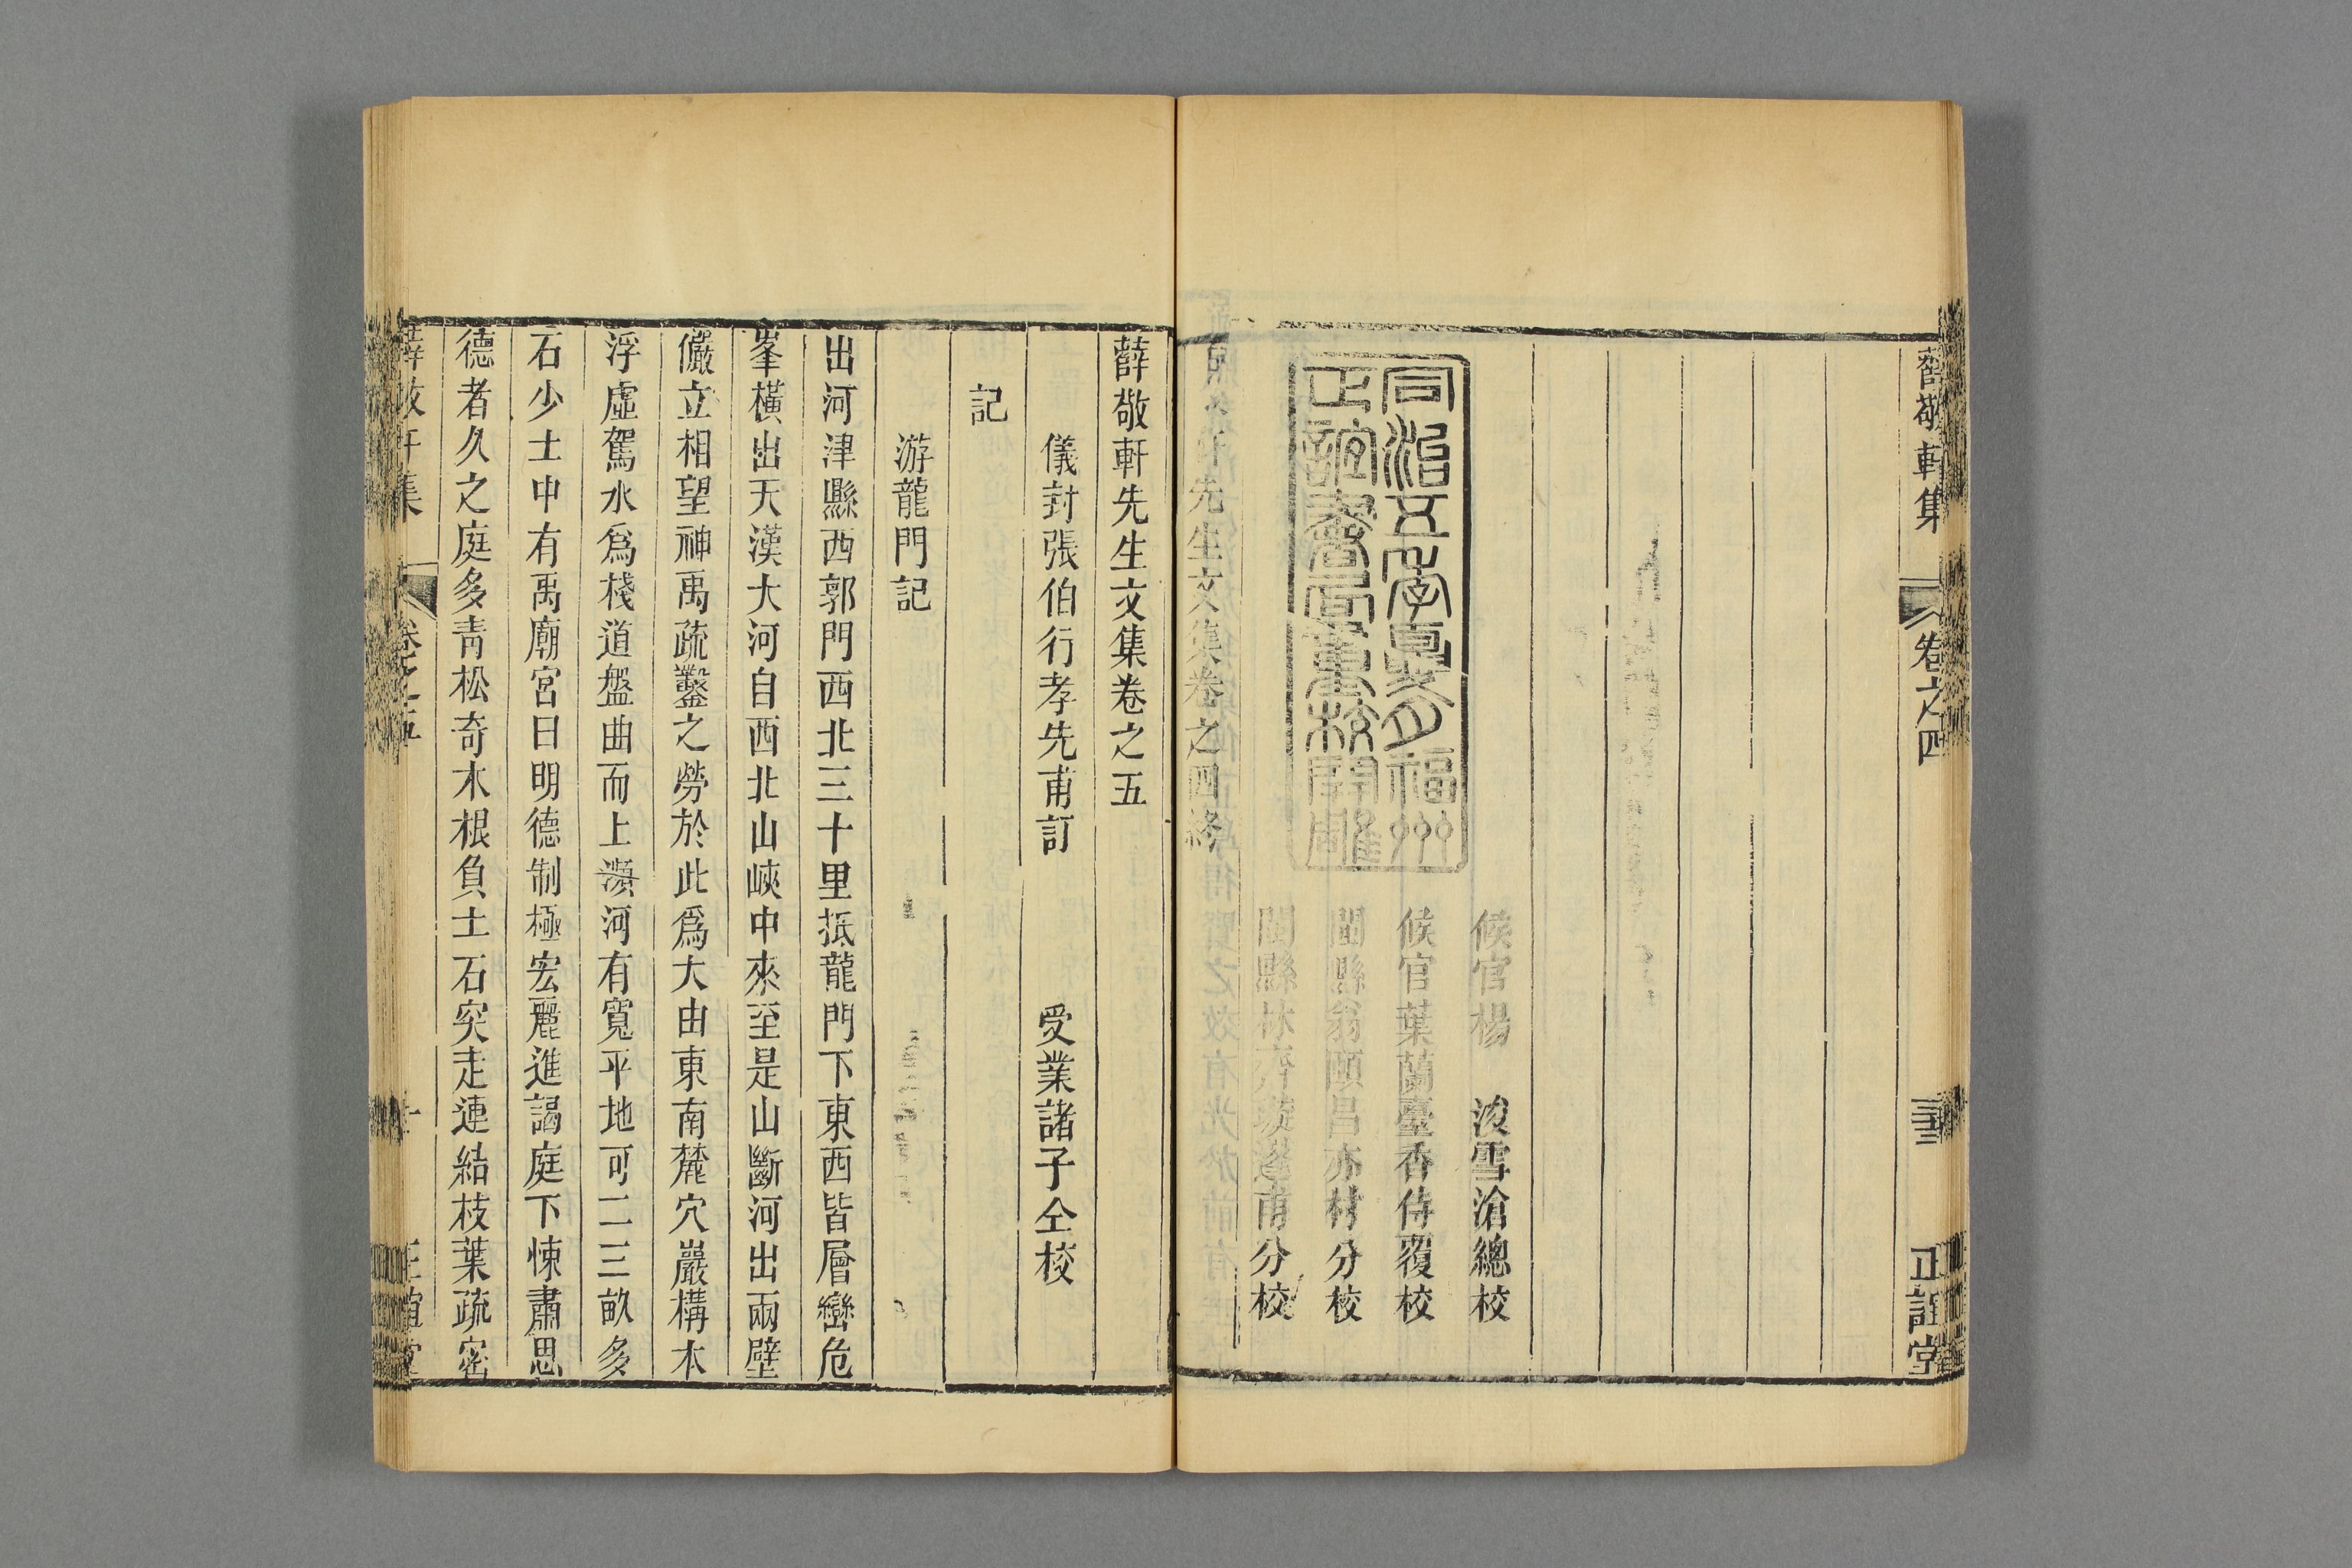 薛敬軒集
卷之四
正誼堂
候官楊 浚雪滄總校
候官葉蘭臺香侍覆校
閩縣翁頤昌亦材分校
閩縣林齊 分校
同治五年夏月福州
正誼書局重校開雕
先生文集卷之四終
薛敬軒先生文集卷之五
儀封張伯行孝先甫訂 受業諸子仝校
記
游龍門記
出河津縣西郭門西北三十里抵龍門下東西皆層巒危
峯橫出天漢大河自西北山峽中來至是山斷河出兩壁
儼立相望神禹疏鑿之勞於此爲大由東南麓穴巖構木
浮虛駕水爲棧道盤曲而上瀕河有寬平地可二三畝多
石少土中有禹廟宮曰明德制極宏麗進謁庭下悚肅思
德者久之庭多青松奇木根負土石突走連結枝葉疏密
集
卷之五
一